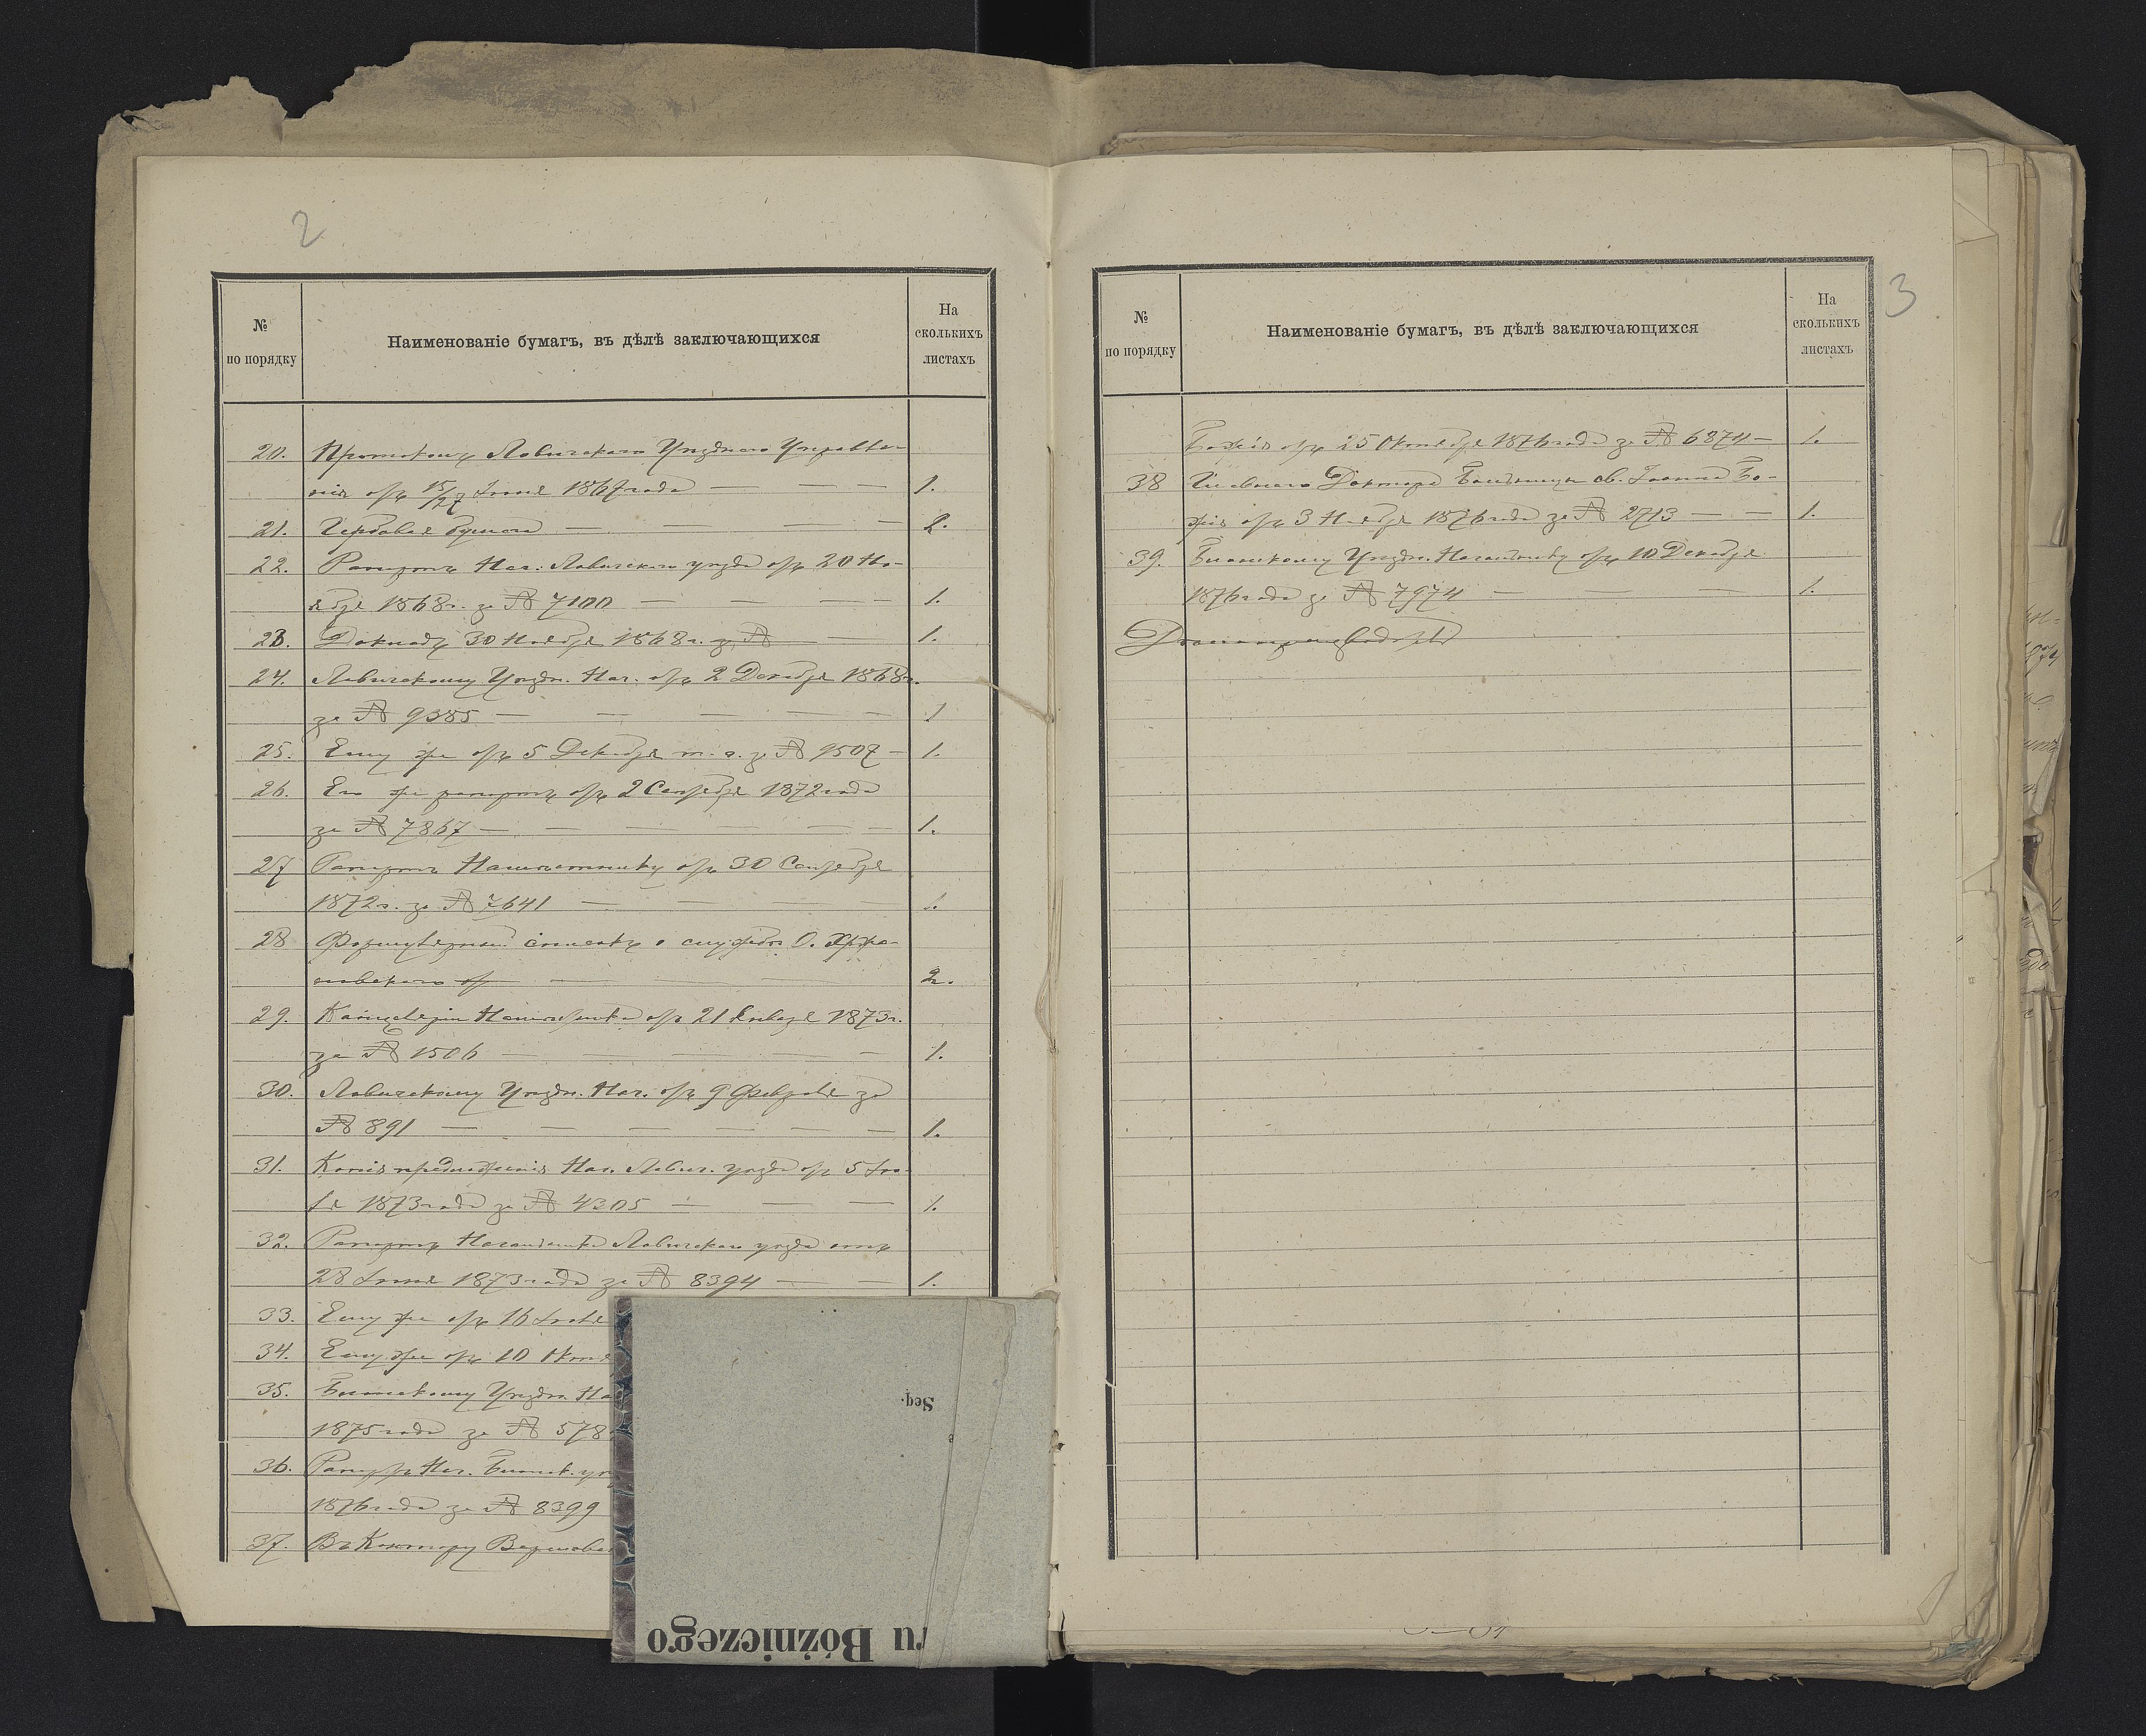 2
№
по порядку
Наименованіе бумагъ, въ дѣлѣ заключающихся
На
сколькихъ
листахъ
20. Протоколъ Ловичскаго Уѣзднаго Управле-
нія отъ 15/27 Іюня 1867 года — — — 1.
21. Гербовая бумага — — — 2.
22. Рапортъ Нач. Ловичскаго уѣзда отъ 20 Но-
ября 1868 г. за № 7100 — — — — 1.
23. Докладъ 30 Ноября 1868 г. за № — — 1.
24. Ловичскому Уѣздн. Нач. отъ 2 Декабря 1868 г.
за № 9385 — — — — 1
25. Ему же отъ 5 Декабря т. г. за № 9507 — 1.
26. Его же рапортъ отъ 2 Сентября 1872 года
за № 7867 — — — — — 1.
27 Рапортъ Намѣстнику отъ 30 Сентября
1872 г. за № 7641 — — 1.
28 Формулярный списокъ о службѣ О.
2.
29. Канцеляріи Намѣстника отъ 21 Января 1873 г.
за № 1506 — — — — — 1.
30. Ловичскому Уѣздн. Нач. отъ 9 Февраля за
№ 891 — — — — — — 1.
31. Копія предложенія Нач. Лович. уѣзда отъ 5 Ію-
ля 1873 года за № 4305 — — — 1.
32. Рапортъ Начальника Ловичскаго уѣзда отъ
28 Іюня 1873 года за № 8394 — — 1.
33. Ему же отъ 16 Іюля
34. Ему же отъ 10 Октя
35. Блонскому Уѣздн. На
1875 года за № 578
36. Рапортъ Нач. Блонск. уѣ
1876 года за № 8399
37. Въ Контору Варшавс
Seq.
ru Bóżniczego
3
№
по порядку
Наименованіе бумагъ, въ дѣлѣ заключающихся
На
сколькихъ
листахъ
Божія отъ 15 Октября 1876 года за № 6874 — 1.
38 Главнаго Доктора Больницы св. Іоанна Бо-
жія отъ 3 Ноября 1876 года за № 2713 — — 1.
39. Блонскому Уѣздн. Начальнику отъ 10 Декабря
1876 года за № 7974 — — — 1.
Дѣлопроизводитель